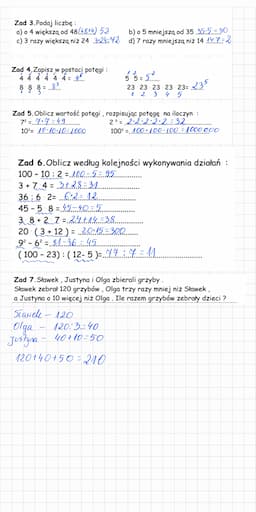 Zad 3.Podaj liczbę :
a) o 4 większą od 48 (48+4) 52 b) o 5 mniejszą od 35 35-5=30
c) 3 razy większą niż 24 3·24=72 d) 7 razy mniejszą niż 14 14:7=2
Zad 4.Zapisz w postaci potęgi :
4 4 4 4 4 4= 4⁶ 5 5= 5²
8 8 8= 8³ 23 23 23 23 23= 23⁵
1 2 3 4 5
Zad 5.Oblicz wartość potęgi , rozpisując potęgę na iloczyn :
7²= 7·7=49 2⁵= 2·2·2·2·2=32
10³= 10·10·10=1000 100³= 100·100·100=1000000
Zad 6.Oblicz według kolejności wykonywania działań :
100 - 10 : 2 = 100-5=95
3 + 7 4 = 3+28=31
36 : 6 2= 6·2=12
45 - 5 8 = 45-40=5
3 8 + 2 7 = 24+14=38
20 ( 3 + 12 ) = 20·15=300
9² - 6² = 81-36=45
( 100 - 23 ) : ( 12- 5 )= 77:7=11
Zad 7.Sławek , Justyna i Olga zbierali grzyby .
Sławek zebrał 120 grzybów , Olga trzy razy mniej niż Sławek ,
a Justyna o 10 więcej niż Olga . Ile razem grzybów zebrały dzieci ?
Sławek - 120
Olga - 120:3=40
Justyna - 40+10=50
120+40+50=210